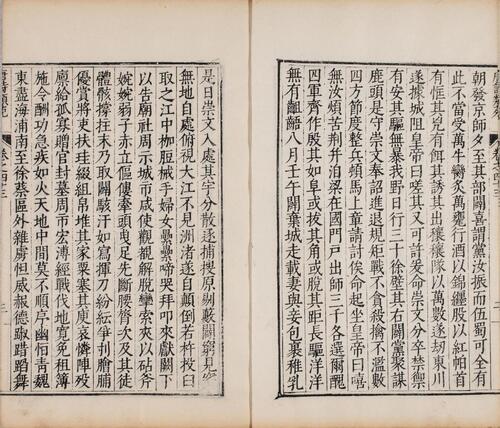 朝發京師夕至其部闢喜謂黨汝振而伍蜀可全有
此不當受萬牛臠炙萬甕行酒以錦纏股以紅帕首
有恇其兇有餌其誘其出穰穰隊以萬數遂刼東川
遂據城阻皇帝曰嗟其又可許爰命崇文分卒禁禦
有安其驅無暴我野日行三十徐壁其右闢黨聚謀
鹿頭是守崇文奉詔進退規矩戰不貪殺擒不濫數
四方節度整兵頓馬上章請討俟命起坐皇帝曰嘻
無汝煩苦荆并洎梁在國門戶出師三千各選爾醜
四軍齊作殷其如阜或拔其角或脫其距長驅洋洋
無有齟齬八月壬午闢棄城走載妻與妾包裹稚乳
是日崇文入處其宇分散逐捕搜原剔藪闢窮見窘
無地自處俯視大江不見洲渚遂自顛倒若杵投臼
取之江中枷脰械手婦女纍纍啼哭拜叩來獻闕下
以告廟社周示城市咸使觀覩解脫攣索夾以砧斧
婉婉弱子赤立傴僂牽頭曳足先斷腰膂次及其徒
體骸撐拄末乃取闢駭汗如寫揮刀紛紜爭刌膾脯
優賞將吏扶珪綴組帛堆其家粟塞其庾哀憐陣歿
廩給孤寡贈官封墓周帀宏溥經戰伐地寬免租簿
施令酬功急疾如火天地中間莫不順序幽恒青魏
東盡海浦南至徐蔡區外雜虜怛威赧德踧踖蹈舞